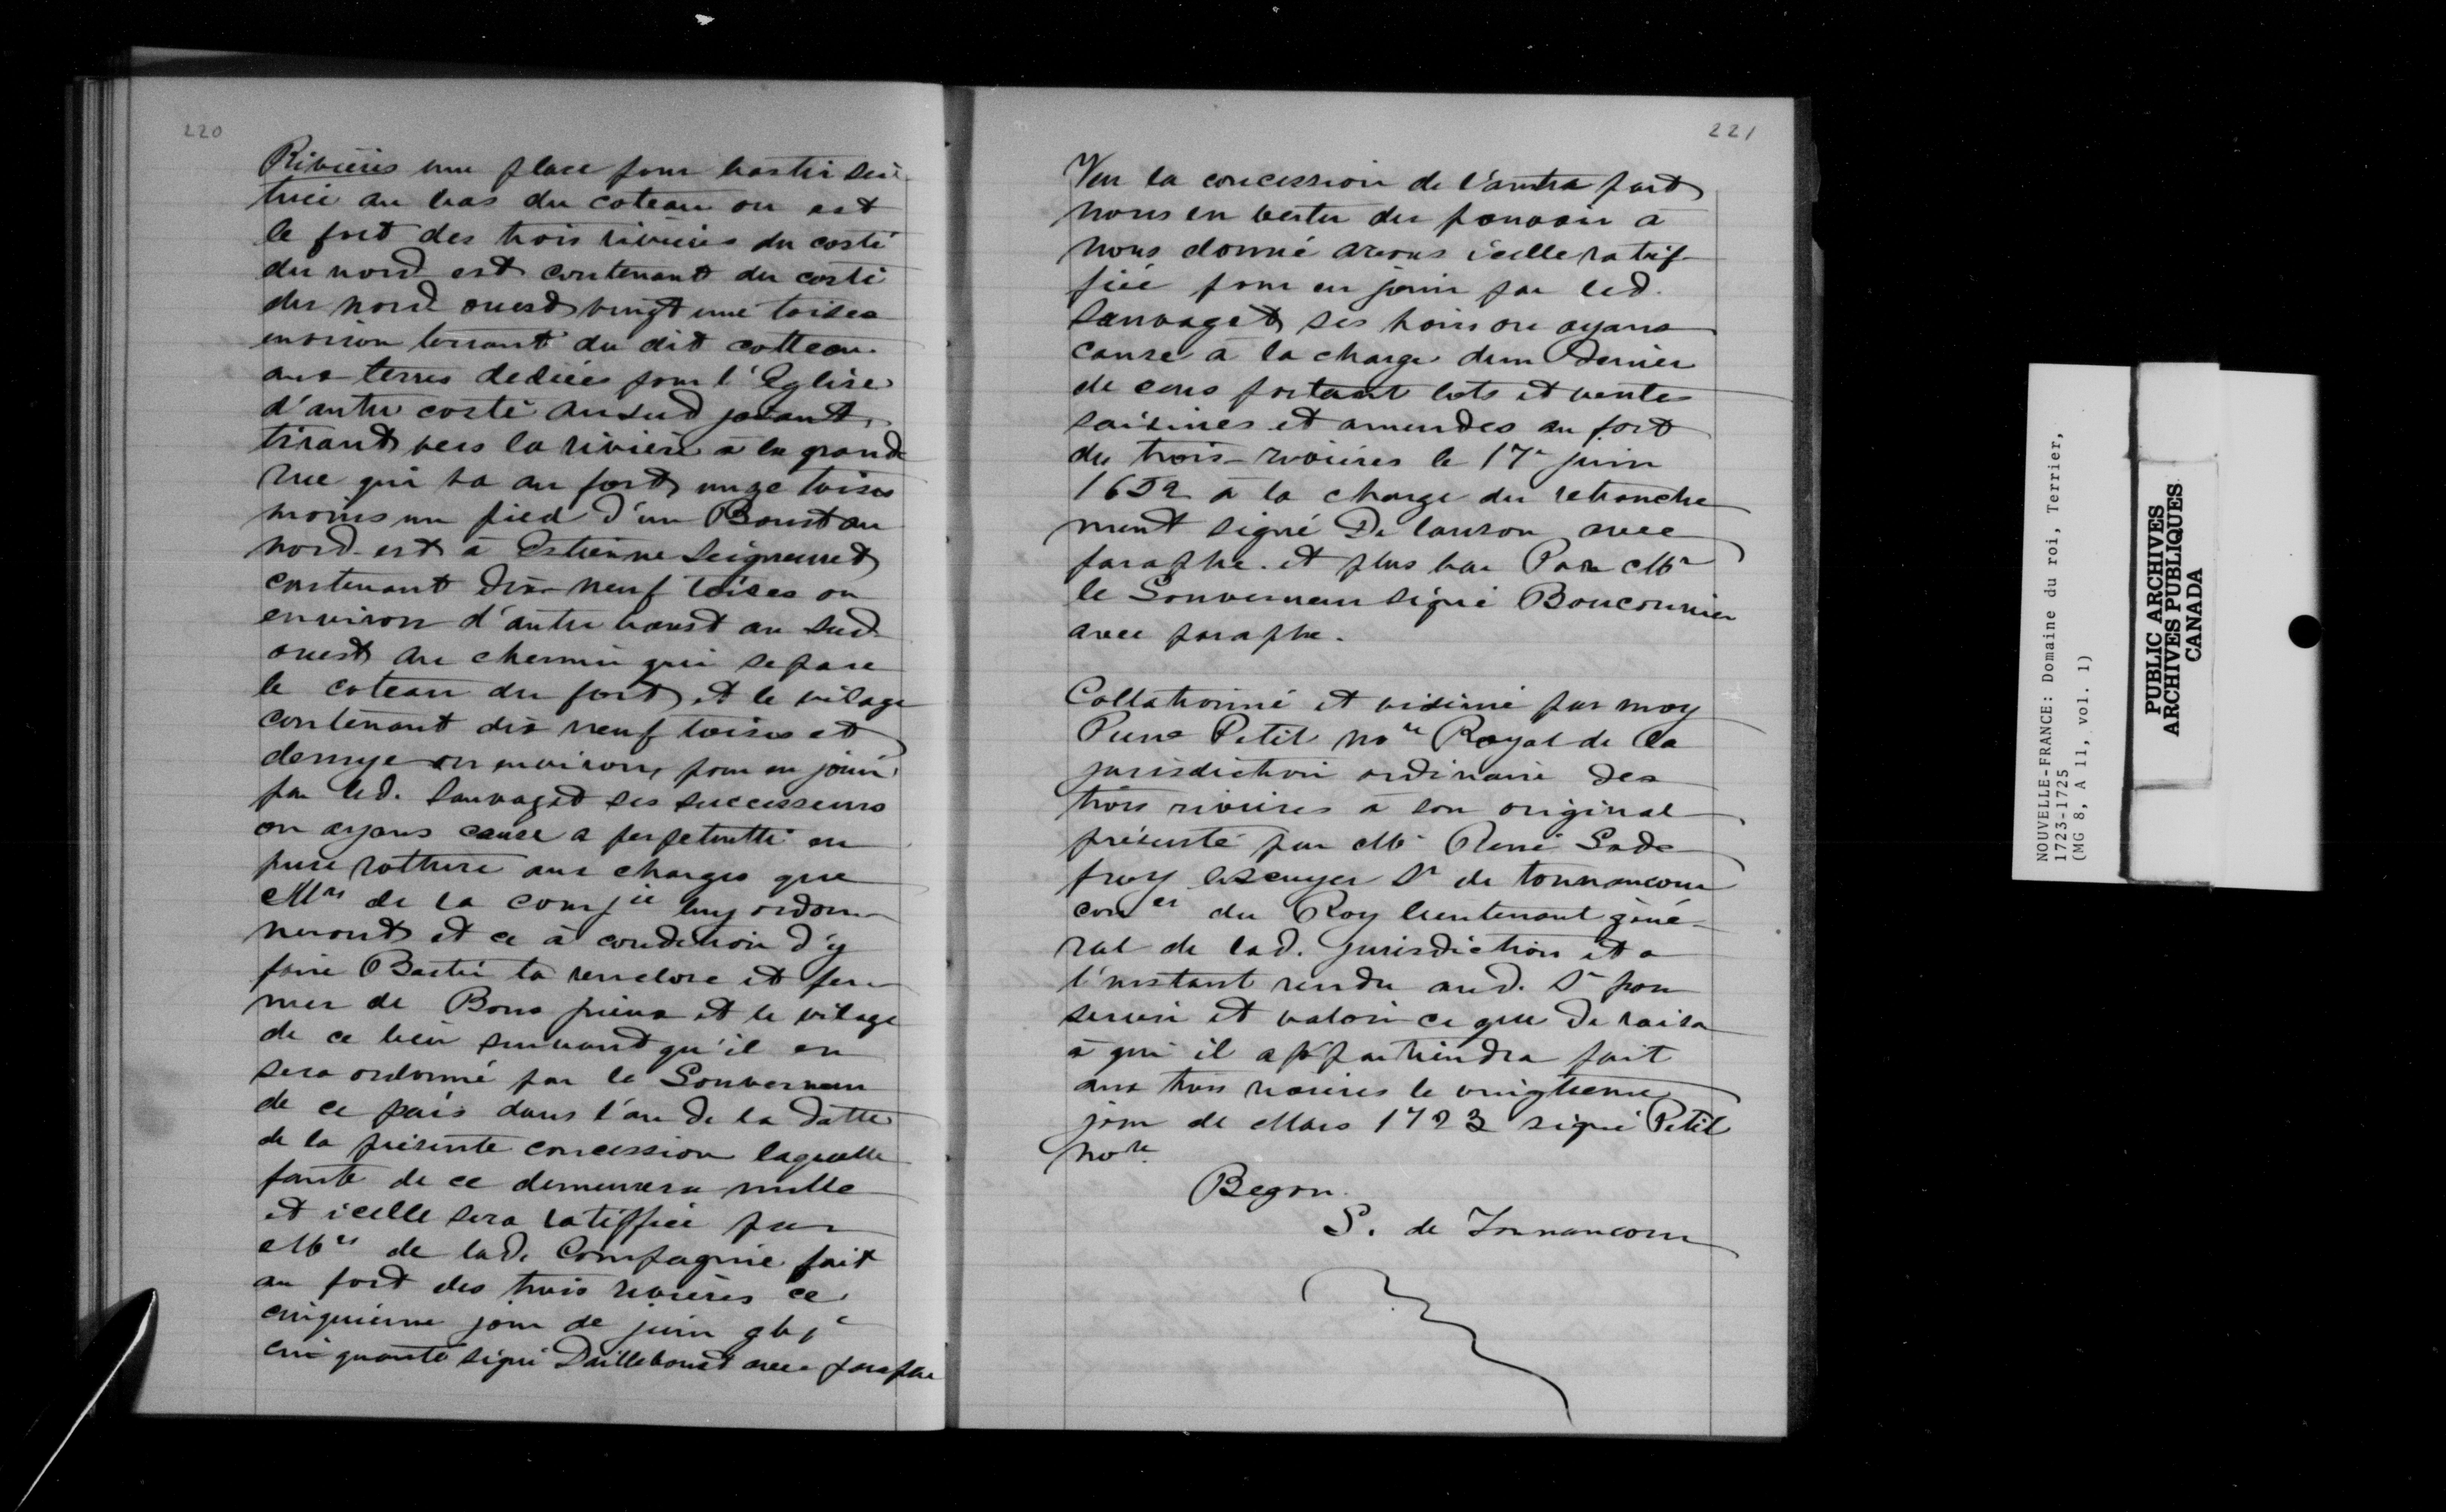 220
Rivières une place pour bastir sci
tuée au bas du coteau ou est
le fort des trois rivieres du costé
du nord est contenant du costé
du nord ouest vingt une toises
environ tirant du dit cotteau
aux terres dediées pour l'Eglise
d'autre costé au sud
tirant vers la rivière a la grande
rue qui va au fort unze toises
moins un pied d'un Boust au
nord-est à Estienne Seigneuret
contenant dix-neuf toises ou
environ d'autre boust au sud
ouest au chemin qui separe
le coteau du fort et le vilage
contenant dix neuf toises et
demye ou environ, pour en jouir
par led. Sauvaget ses successeurs
ou ayans cause a perpetuitté en
pure rotture aux charges que
Mrs de la compie luy ordon
neront et ce à condition d'y
faire Bastir la renclore et fer
mer de Bons pieux et le vilage
de ce lieu suivant qu'il en
sera ordonné par le Gouverneur
de ce païs dans l'an de la datte
de la présente concession laquelle
faute de ce demeurera nulle
et icelle sera ratiffiée par
Mrs de lad. Compagnie fait
au fort des trois rivières ce
cinquième jour de juin gbjc
cinquante signé Dailleboust avec paraphe
221
Veu la concession de l'autre part
nous en vertu du pouvoir a
nous donné avons icelle ratif
fiée pour en jouir par led.
Sauvaget ses hoirs ou ayans
cause à la charge dun Denier
de cens portant lots et ventes
saisines et amendes au fort
du trois-rivières le 17e juin
1652 a la charge du retranche
ment signé De lauson avec
paraphe. et plus bas Par Mr
le Gouverneur signé
avec paraphe.
Collationné et vidimé par moy
Pierre Petit nore Royal de la
jurisdiction ordinaire des
trois rivières a son original
présenté par Mr René Gode
froy escuyer Sr de tonnancour
coner du Roy lieutenant géné-
ral de lad. jurisdiction et a
l'instant rendu aud. Sr pour
servir et valoir ce que de raison
à qui il appartiendra fait
aux trois rivières le vingtieme
jour de Mars 1723 signé Petit
nore
Begon
G. de Tonnancour
NOUVELLE-FRANCE: Domaine du roi, Terrier,
1723-1725
(MG 8, A 11, vol. 1)
PUBLIC ARCHIVES
ARCHIVES PUBLIQUES
CANADA